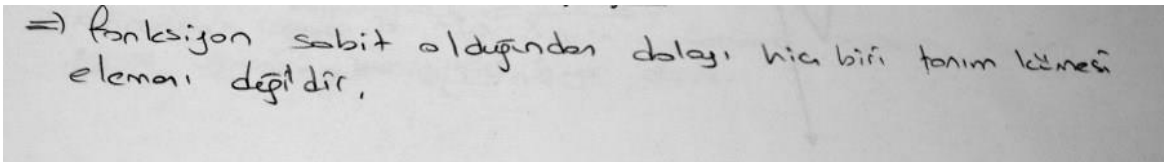 => fonksiyon sabit olduğundan dolayı hiç biri tanım kümesi
elemanı değildir.